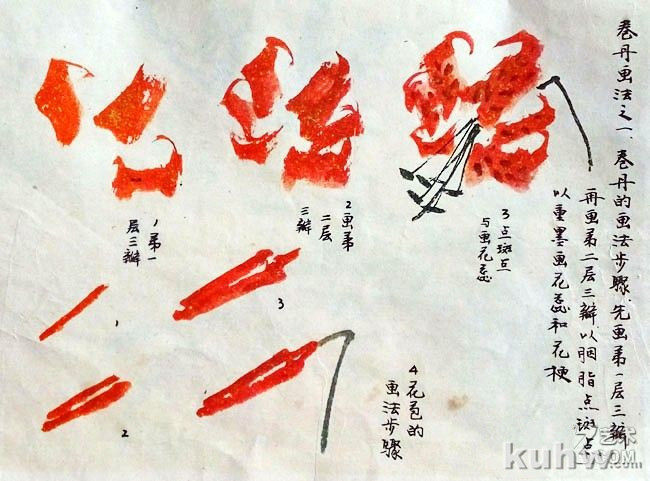 卷丹画法之一、卷丹的画法步骤.先画第一层三瓣
再画第二层三瓣以胭脂点斑点
以重墨画花蕊和花梗
1第一
层三瓣
2画第
二层
三瓣
3点斑点
与画花蕊
1
2
3
4花苞的
画法步骤
艺术
.COM
kuhw.com